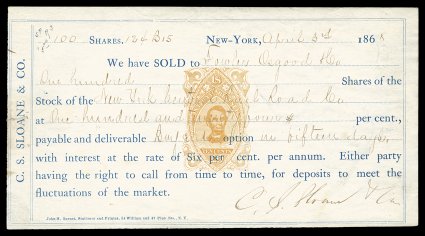 100 SHARES. 124 B15 NEW-YORK, April 3d 1868
We have SOLD to Fowler Osgood & Co
One hundred Shares of the
Stock of the New York Central Rail Road Co
at One hundred and twenty four per cent.,
payable and deliverable Buyers option in fifteen days
with interest at the rate of Six per cent. per annum. Either party
having the right to call from time to time, for deposits to meet the
fluctuations of the market.
C. S. Sloane & Co
C. S. SLOANE & CO.